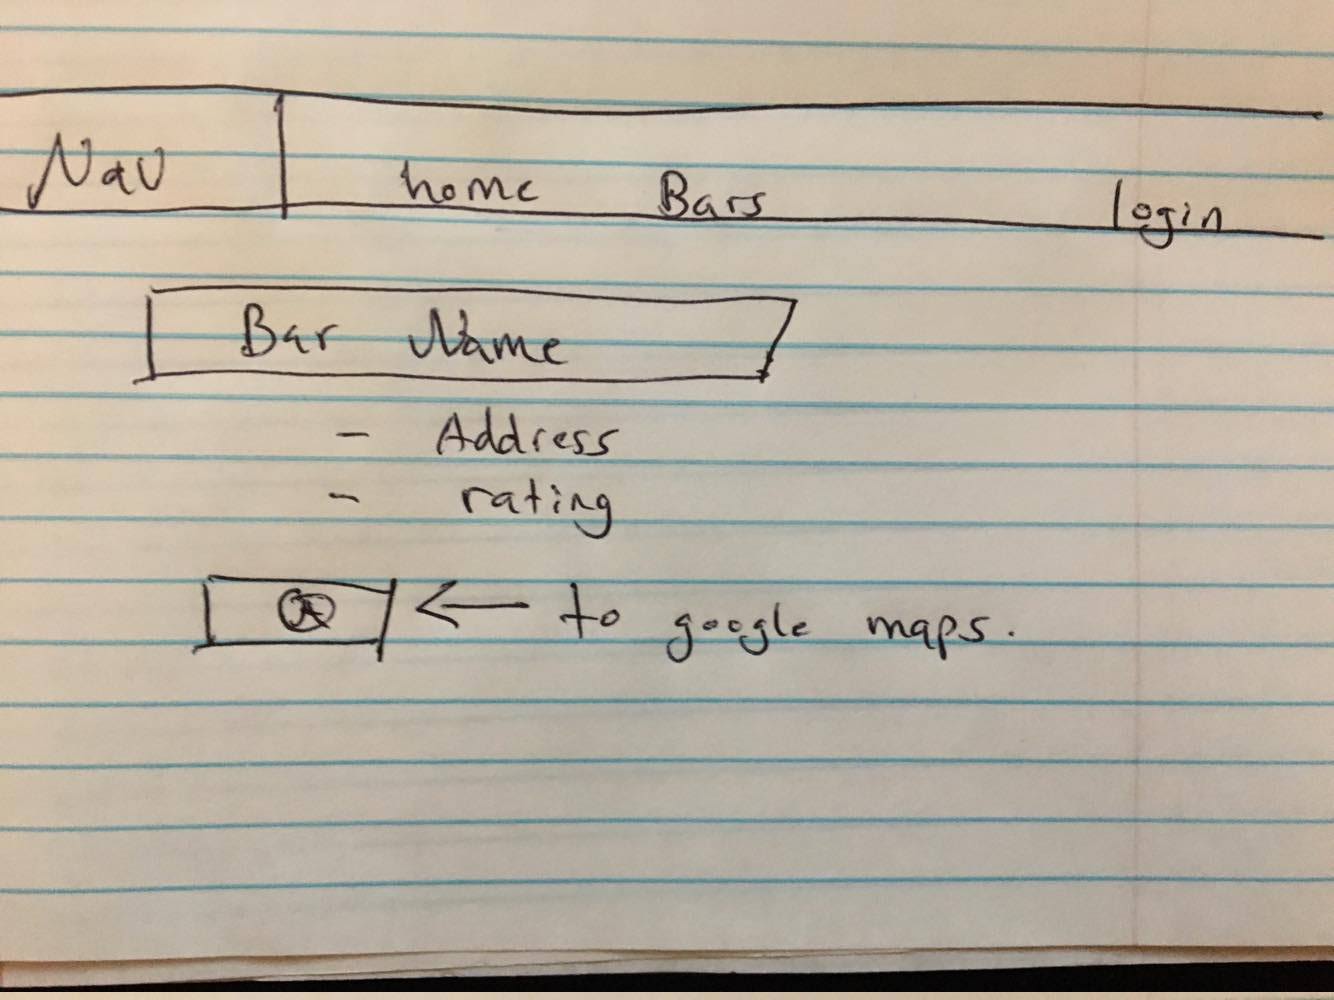 Nav home Bars login
Bar Name
- Address
- rating
← to google maps.